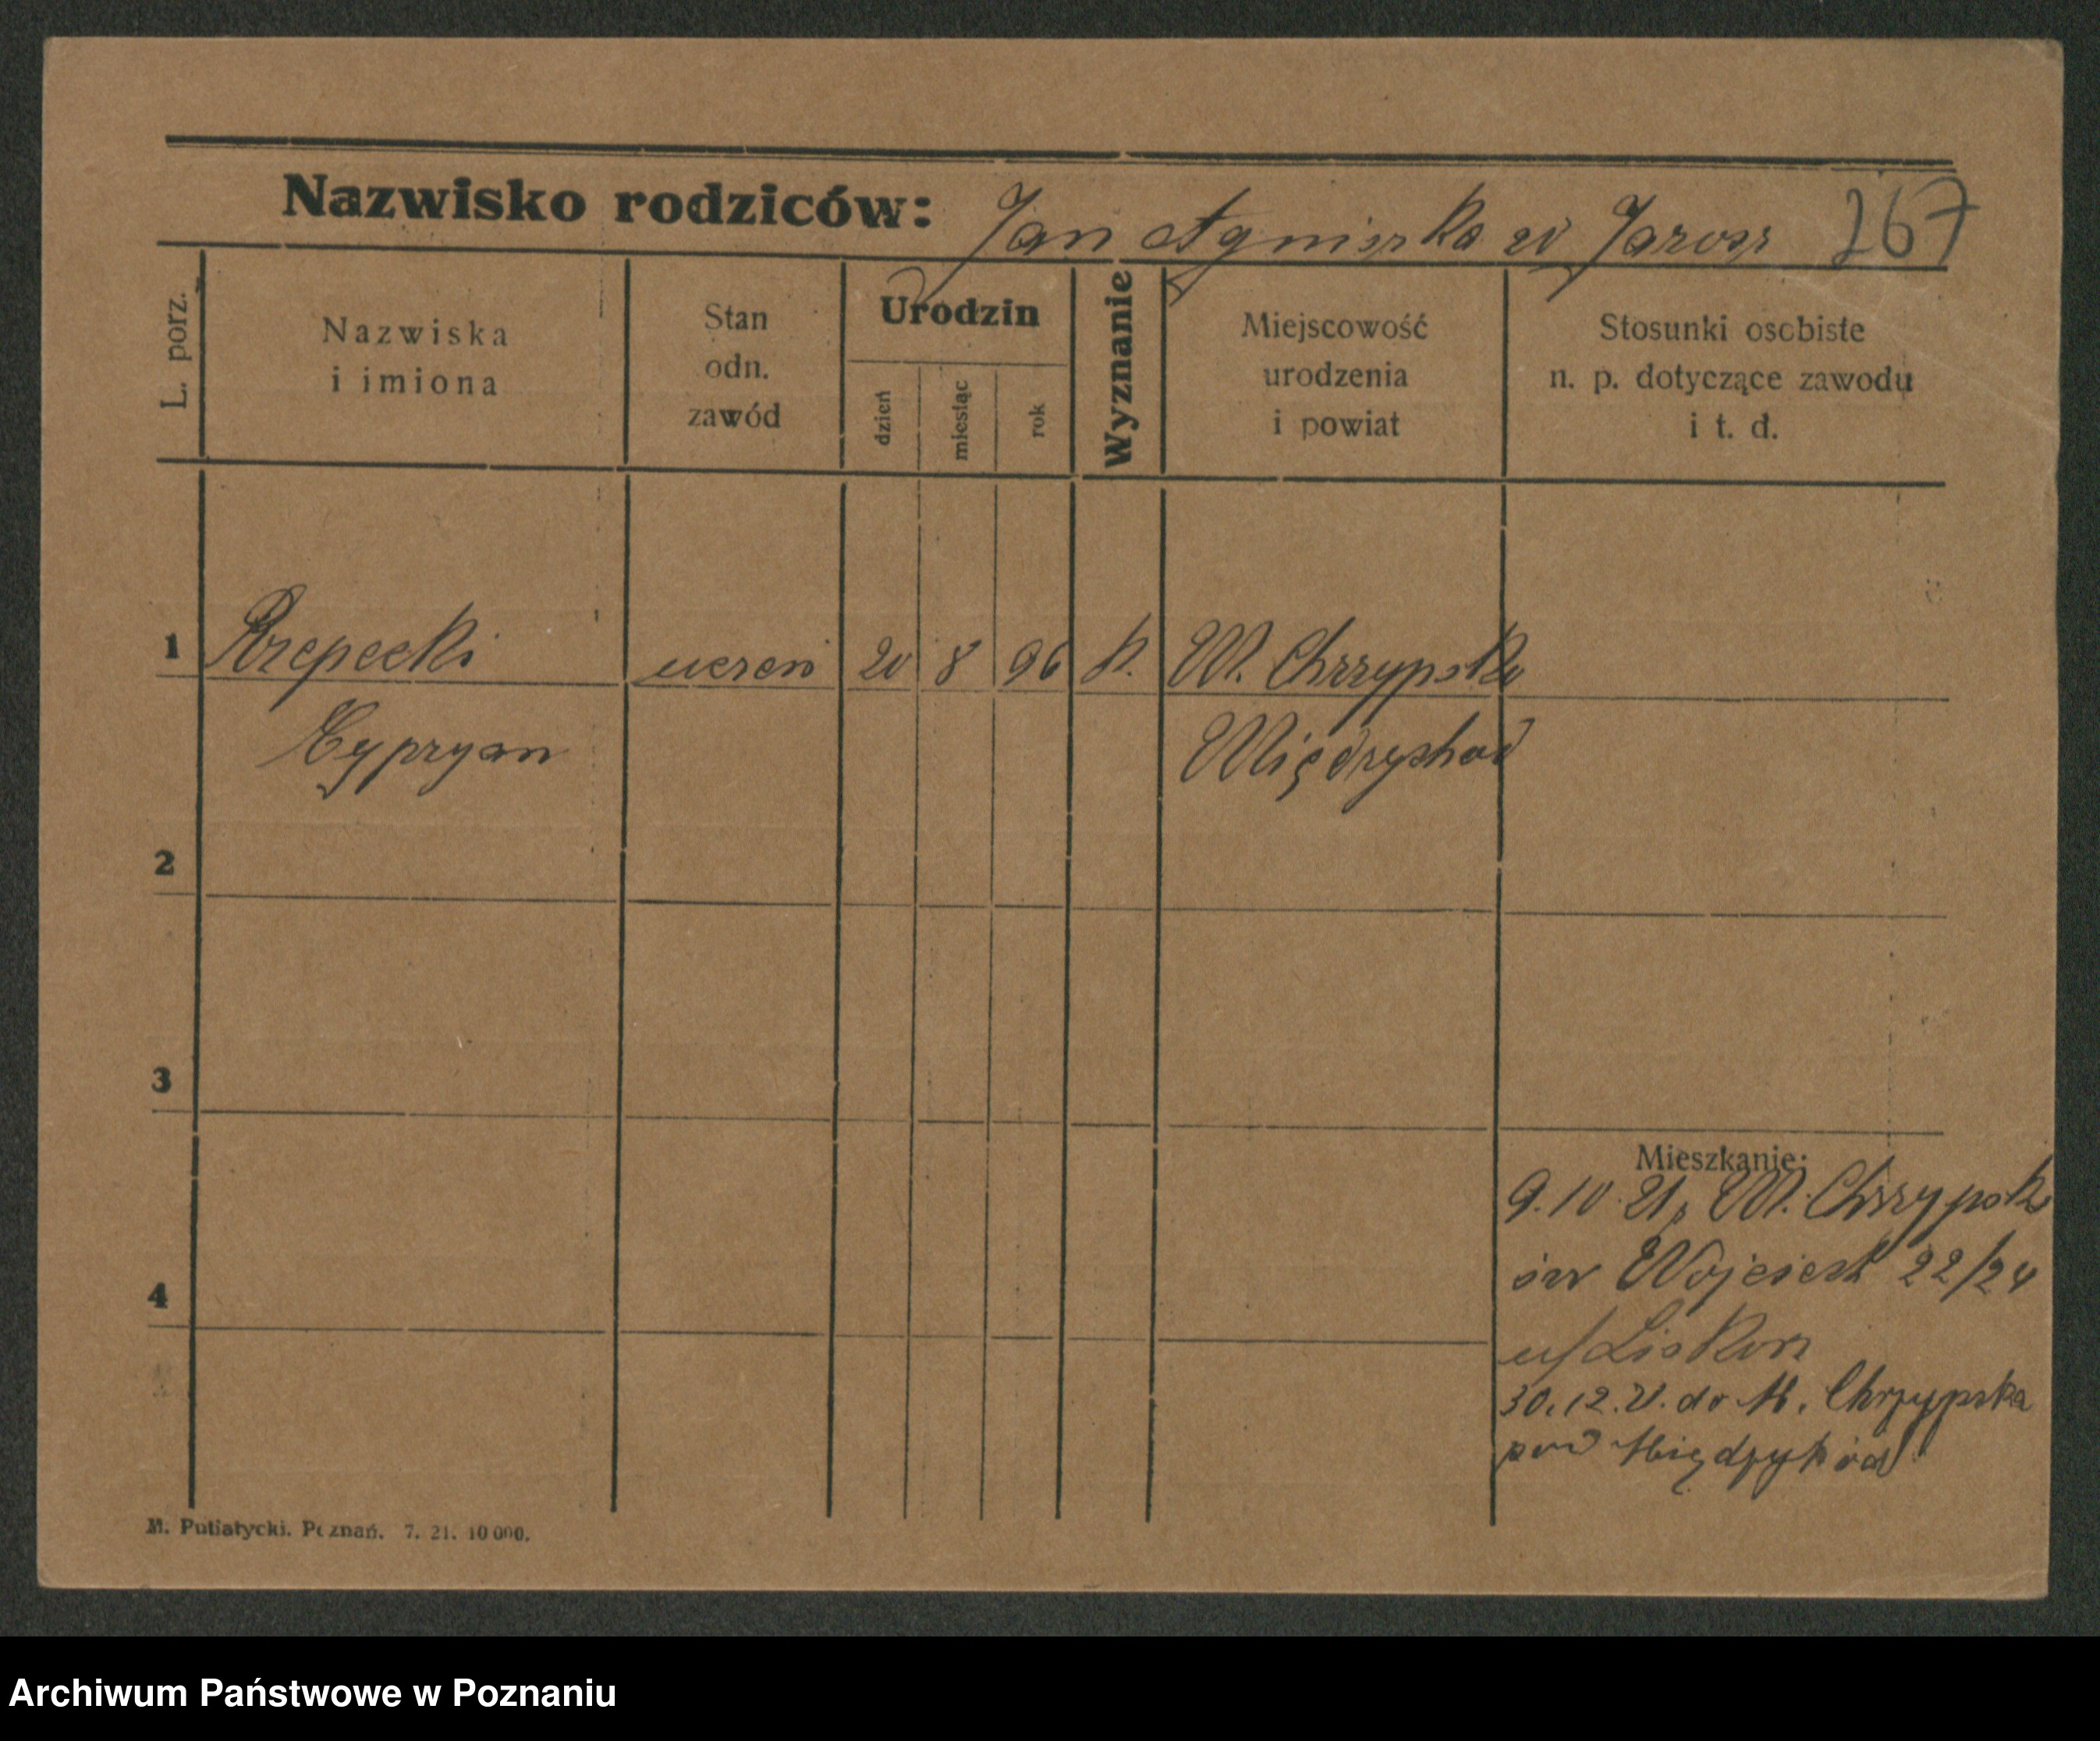 Nazwisko rodziców: Jan Agnieszka z d Jarosz 267
L. porz.
Nazwiska
i imiona
Stan
odn.
zawód
Urodzin
dzień
miesiąc
rok
Wyznanie
Miejscowość
urodzenia
i powiat
Stosunki osobiste
n. p. dotyczące zawodu
i t. d.
1 Rzepecki uczeń 20 8 96 k. W. Chrzypsko
Cypryan Międzychód
2
3
Mieszkanie:
9.10 21 z W. Chrzypsko
św Wojciech 22/24
4
u/
30.12.21. do W. Chrzypska
pow Międzychód
M. Putiatycki. Poznań. 7. 21. 10 000.
Archiwum Państwowe w Poznaniu